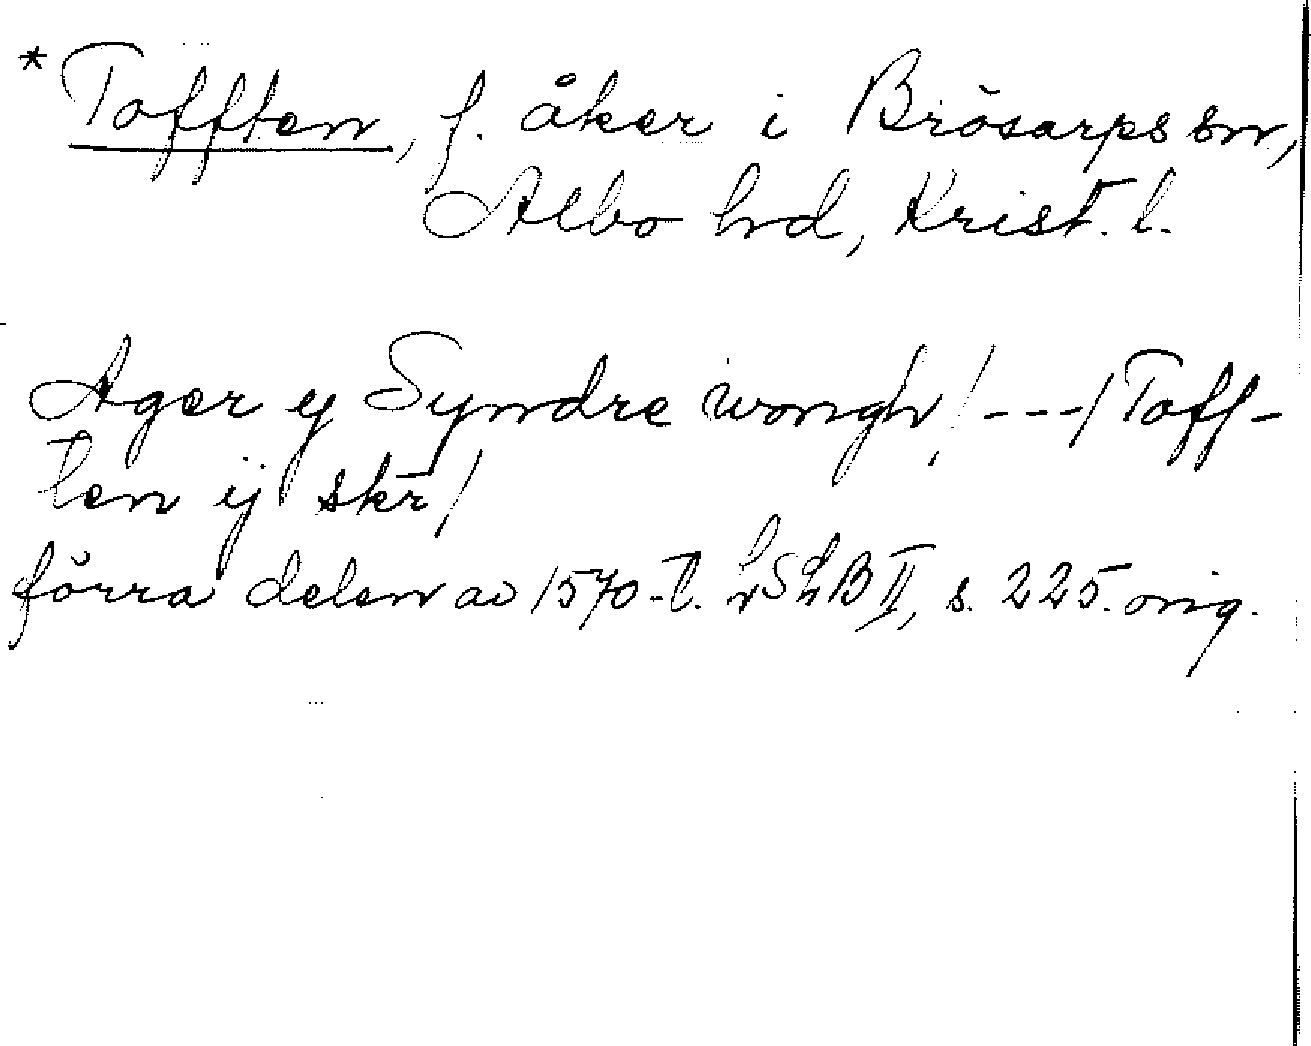 * Tofften, f. åker i Brösarps sn,
Albo hrd, Krist. l.
Ager ij Syndre wongh, / --- / Toff-
ten ij skr /
förra delen av 1570-t. LSLB II, s. 225. orig.